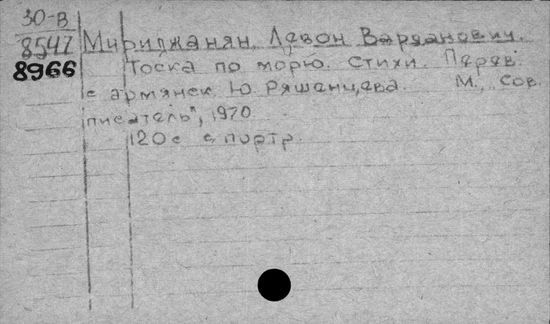 30-В
8547
8966
Мириджанян, Левон Варданович.
Тоска по морю. Стихи. Перев.
с армянск. Ю. Ряшенцева. М., "Сов.
писатель", 1970
120 с. с портр.